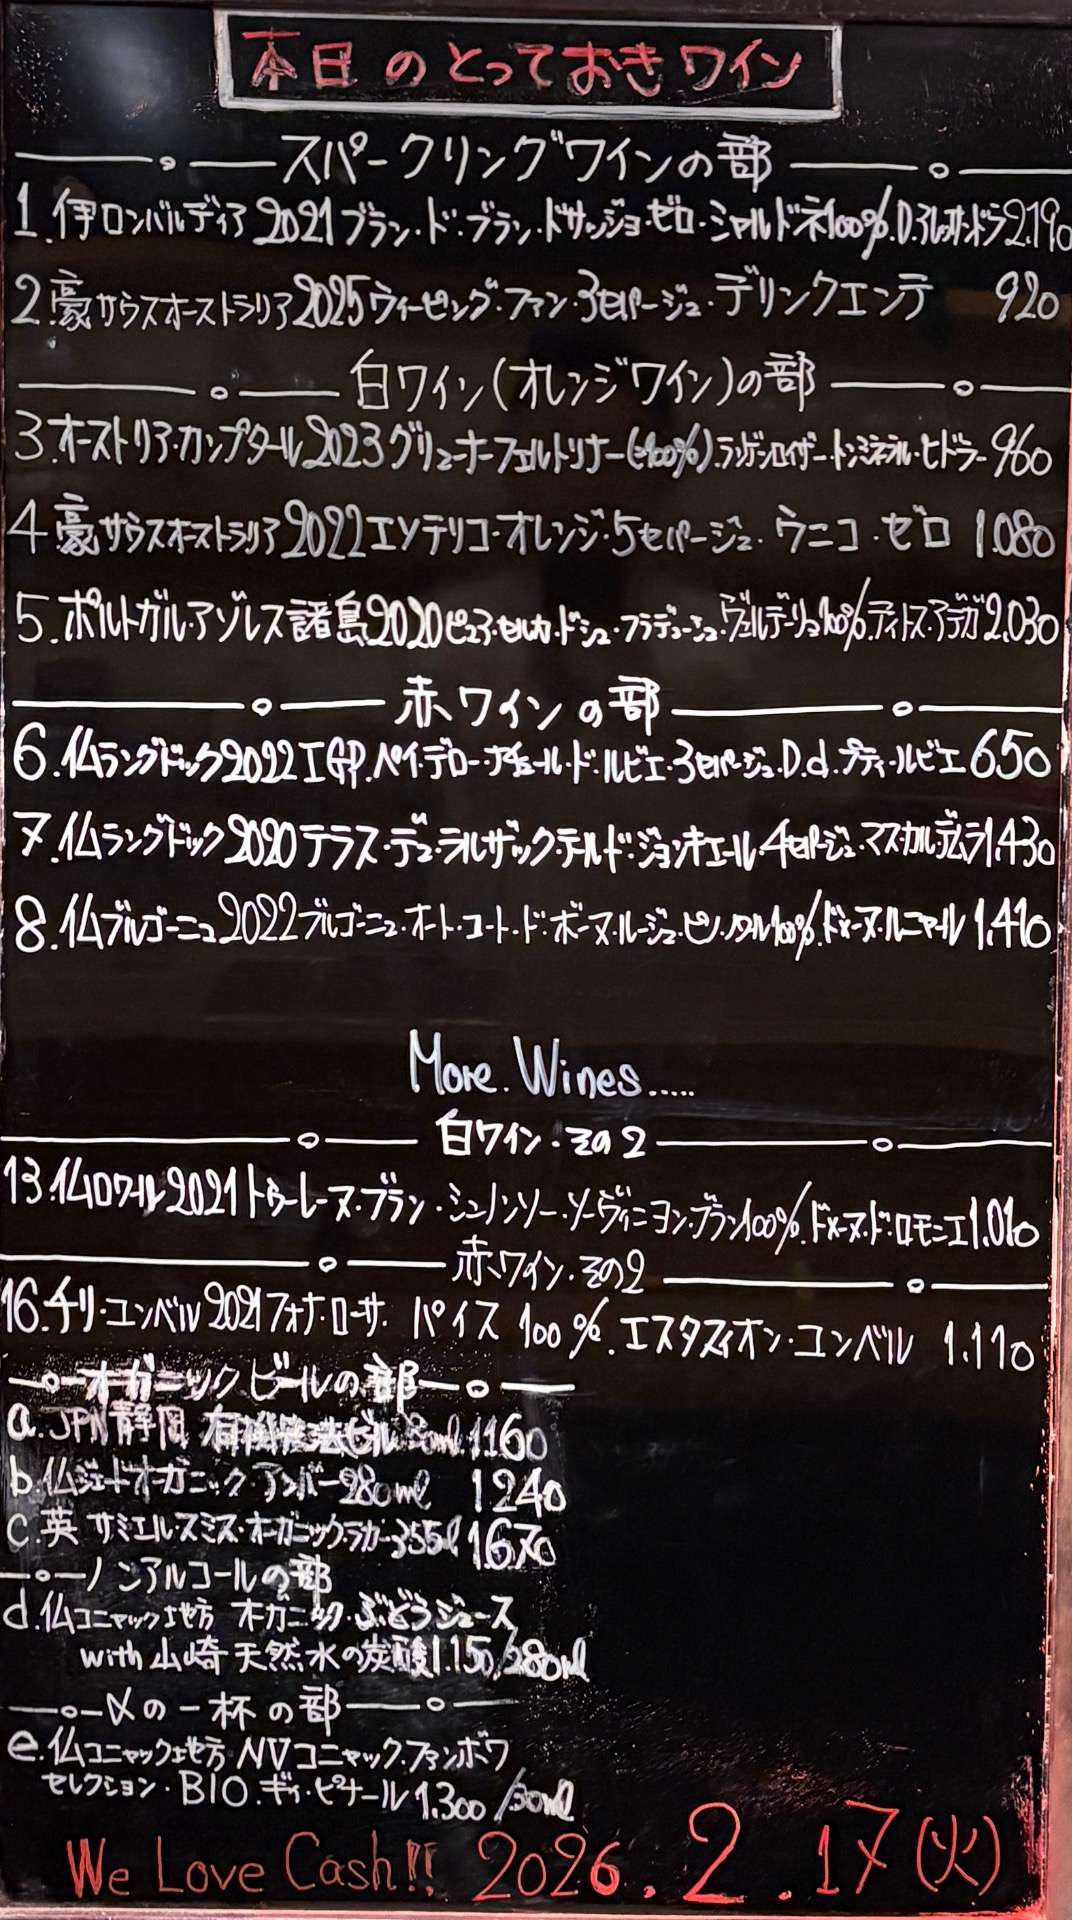 本日のとっておきワイン
スパークリングワインの部
1.伊ロンバルディア2021ブラン・ド・ブラン・ドサッジョ・ゼロ・シャルドネ100%.D.アレッサンドラ2.190
2.豪サウスオーストラリア2025ウィーピング・ファン・3セパージュ・デリンクエンテ 920
白ワイン(オレンジワイン)の部
3.オーストリア・カンプタール2023グリューナーフェルトリナー(100%).ランゲンロイザー・トンミネラル・ヒドラー960
4豪サウスオーストラリア2022エソテリコ・オレンジ・5セパージュ.ウニコ・ゼロ 1.080
5.ポルトガル・アゾレス諸島2020ピュア・セルカ・ドシュ・フラデーシュ・ヴェルデーリョ100%.ティトス・アデガ2.030
赤ワインの部
6.仏ラングドック2022IGP.ペイ・デロー・ナチュール・ド・ルビエ・3セパージュ.D.d.プティ・ルビエ650
7.仏ラングドック2020テラス・デュ・ラルザック・テール・ド・ジョンキエール・4セパージュ・マス・カル・デムラ1.430
8.仏ブルゴーニュ2022ブルゴーニュ・オート・コート・ド・ボーヌ・ルージュ・ピノ・ノワール100%.ドメーヌ・ルニャール 1.410
More.Wines.....
白ワイン・その2
13.仏ロワール2021トゥーレーヌ・ブラン・シュノンソー・ソーヴィニヨン・ブラン100%.ドメーヌ・ド・ロモニエ1.010
赤ワイン・その2
16.チリ・コンベル2021フォナ・ローサ パイス 100%.エスタシィオン・コンベル 1.110
オーガニックビールの部
a.JPN静岡 有機農法ビール ml.1160
b.仏ジェードオーガニック・アンバー280ml 1240
c.英 サミエル・スミス・オーガニックラガー355l 1670
ノンアルコールの部
d.仏コニャック地方 オーガニック・ぶどうジュース
with山崎天然水の炭酸1.150/280ml
〆の一杯の部
e.仏コニャック地方NVコニャック・ファンボワ
セレクション・BIO.ギィ・ピナール1.300/30ml
We Love Cash!! 2026.2.17(火)